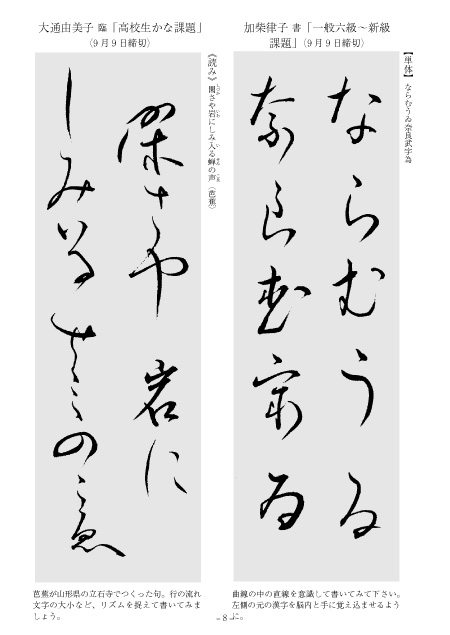 加柴律子 書「一般六級～新級
課題」（9月9日締切）
【単体】 ならむうゐ奈良武宇為
ならむうゐ
奈良武宇為
曲線の中の直線を意識して書いてみて下さい。
左側の元の漢字を脳内と手に覚え込ませるよう
に。
大通由美子 臨「高校生かな課題」
（9月9日締切）
《読み》 閑さや岩にしみ入る蝉の声（芭蕉）
閑さや 岩に
しみ入るせミのこゑ
芭蕉が山形県の立石寺でつくった句。行の流れ
文字の大小など、リズムを捉えて書いてみま
しょう。
－8－